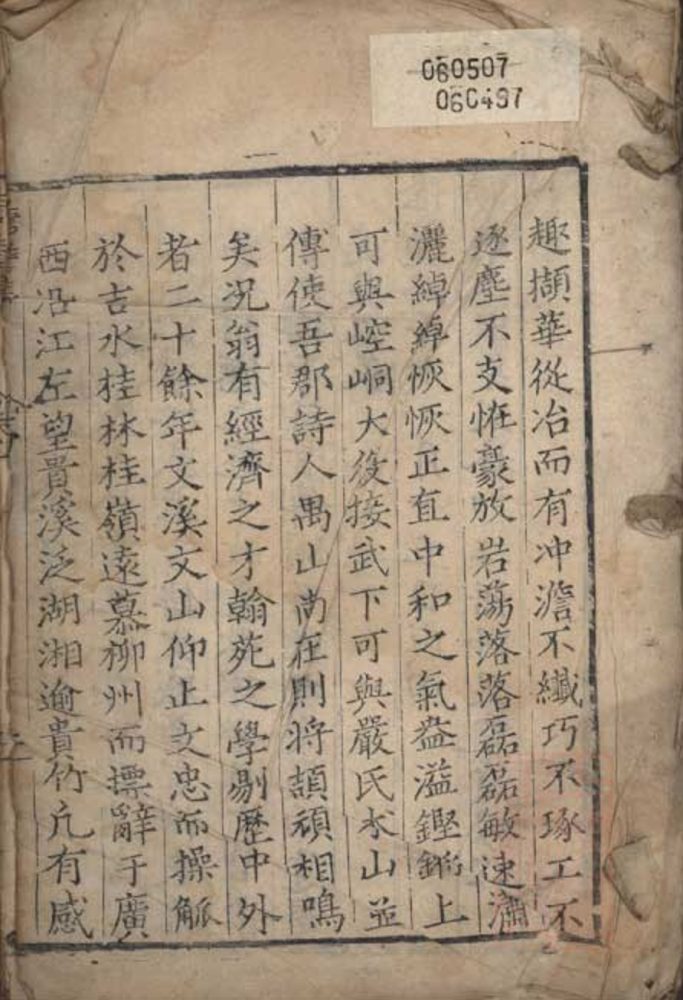 060507
060497
趣擷華從冶而有冲澹不纖巧不琢工不
逐塵不支恠豪放岩蕩落落磊磊敏速瀟
灑綽綽恢恢正直中和之氣益溢鏗鏘上
可與崆峒大後接武下可與嚴氏氷山並
傳使吾郡詩人禺山尚在則將頡頏相鳴
矣况翁有經濟之才翰苑之學剔歷中外
者二十餘年文溪文山仰止文忠而操觚
於吉水桂林桂嶺遠慕柳州而摽辭于廣
西沿江左望貴溪泛湖湘逾貴竹凢有感